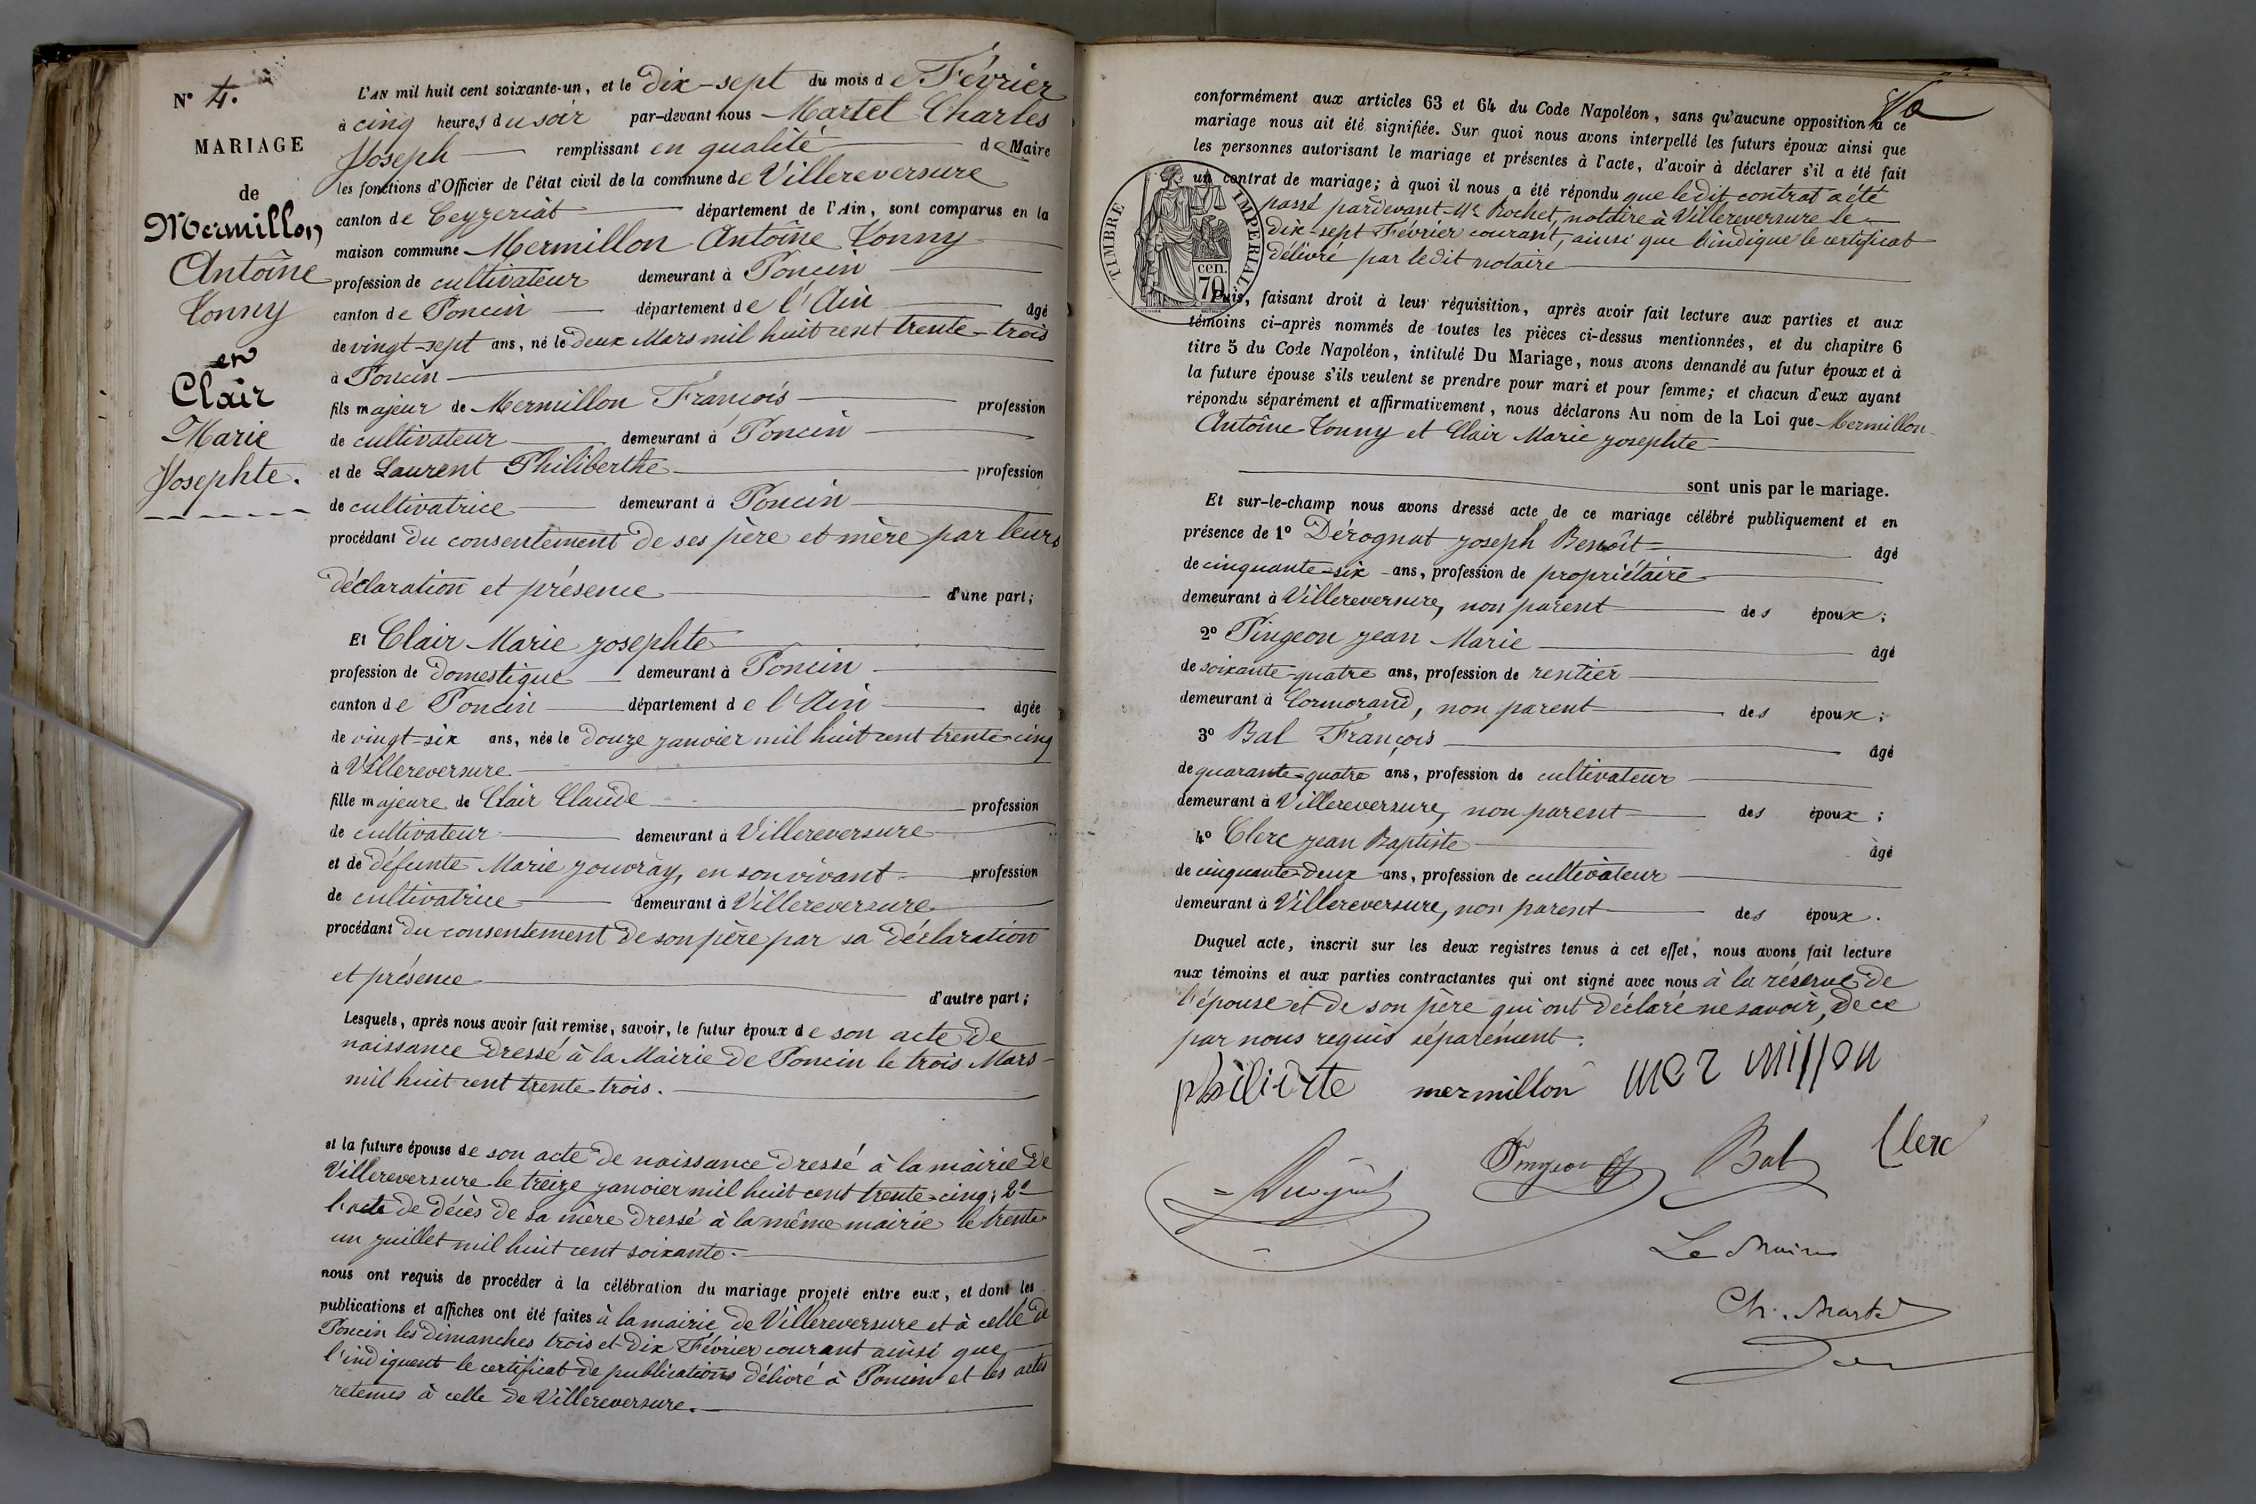 N° 4.
MARIAGE
de
Mermillon
Antoine
Tonny
en
Clair
Marie
Josephte.
L'AN mil huit cent soixante-un, et le Dix-sept du mois de Février
à cinq heures du soir par-devant nous Martet Charles
Joseph remplissant en qualité de Maire
les fonctions d'Officier de l'état civil de la commune de Villereversure
canton de Ceyzeriat département de l'Ain, sont comparus en la
maison commune Mermillon Antoine Tonny
profession de cultivateur demeurant à Poncin
canton de Poncin département de l'Ain âgé
de vingt-sept ans, né le deux Mars mil huit cent trente-trois
à Poncin
fils majeur de Mermillon François profession
de cultivateur demeurant à Poncin
et de Laurent Philiberthe profession
de cultivatrice demeurant à Poncin
procédant du consentement de ses père et mère par leurs
déclaration et présence d'une part;
Et Clair Marie Josephte
profession de Domestique demeurant à Poncin
canton de Poncin département de l'Ain âgée
de vingt-six ans, née le douze janvier mil huit cent trente-cinq
à Villereversure
fille majeure de Clair Claude profession
de cultivateur demeurant à Villereversure
et de défunte Marie Jouvray, en son vivant profession
de cultivatrice demeurant à Villereversure
procédant du consentement de son père par sa déclaration
et présence
d'autre part;
Lesquels, après nous avoir fait remise, savoir, le futur époux de son acte de
naissance dressé à la Mairie de Poncin le trois Mars
mil huit cent trente-trois.
et la future épouse de son acte de naissance dressé à la mairie de
Villereversure le treize janvier mil huit cent trente-cinq; 2°
l'acte de décès de sa mère dressé à la même mairie le trente
un juillet mil huit cent soixante.
nous ont requis de procéder à la célébration du mariage projeté entre eux, et dont les
publications et affiches ont été faites à la mairie de Villereversure et à celle de
Poncin les dimanches trois et dix Février courant ainsi que
l'indiquent le certificat de publications délivré à Poncin et les actes
retenus à celle de Villereversure.
conformément aux articles 63 et 64 du Code Napoléon, sans qu'aucune opposition à ce
mariage nous ait été signifiée. Sur quoi nous avons interpellé les futurs époux ainsi que
les personnes autorisant le mariage et présentes à l'acte, d'avoir à déclarer s'il a été fait
un contrat de mariage; à quoi il nous a été répondu que le dit contrat a été
passé pardevant Me Rochet, notaire à Villereversure le
dix-sept Février courant, ainsi que l'indique le certificat
délivré par le dit notaire
TIMBRE IMPERIAL
cen.
70
Puis, faisant droit à leur réquisition, après avoir fait lecture aux parties et aux
témoins ci-après nommés de toutes les pièces ci-dessus mentionnées, et du chapitre 6
titre 5 du Code Napoléon, intitulé Du Mariage, nous avons demandé au futur époux et à
la future épouse s'ils veulent se prendre pour mari et pour femme; et chacun d'eux ayant
répondu séparément et affirmativement, nous déclarons Au nom de la Loi que Mermillon
Antoine Tonny et Clair Marie Josephte
sont unis par le mariage.
Et sur-le-champ nous avons dressé acte de ce mariage célébré publiquement et en
présence de 1° Dérognat Joseph Benoît âgé
de cinquante-six ans, profession de propriétaire
demeurant à Villereversure, non parent des époux;
2° Pingeon Jean Marie âgé
de soixante-quatre ans, profession de rentier
demeurant à Cormorand, non parent des époux;
3° Bal François âgé
de quarante-quatre ans, profession de cultivateur
demeurant à Villereversure, non parent des époux;
4° Clerc Jean Baptiste âgé
de cinquante-deux ans, profession de cultivateur
demeurant à Villereversure, non parent des époux.
Duquel acte, inscrit sur les deux registres tenus à cet effet, nous avons fait lecture
aux témoins et aux parties contractantes qui ont signé avec nous à la réserve de
l'épouse et de son père qui ont déclaré ne savoir, de ce
par nous requis séparément.
mermillon mermillon
Pingeon Bal Clerc
Le Maire
Ch. Martet